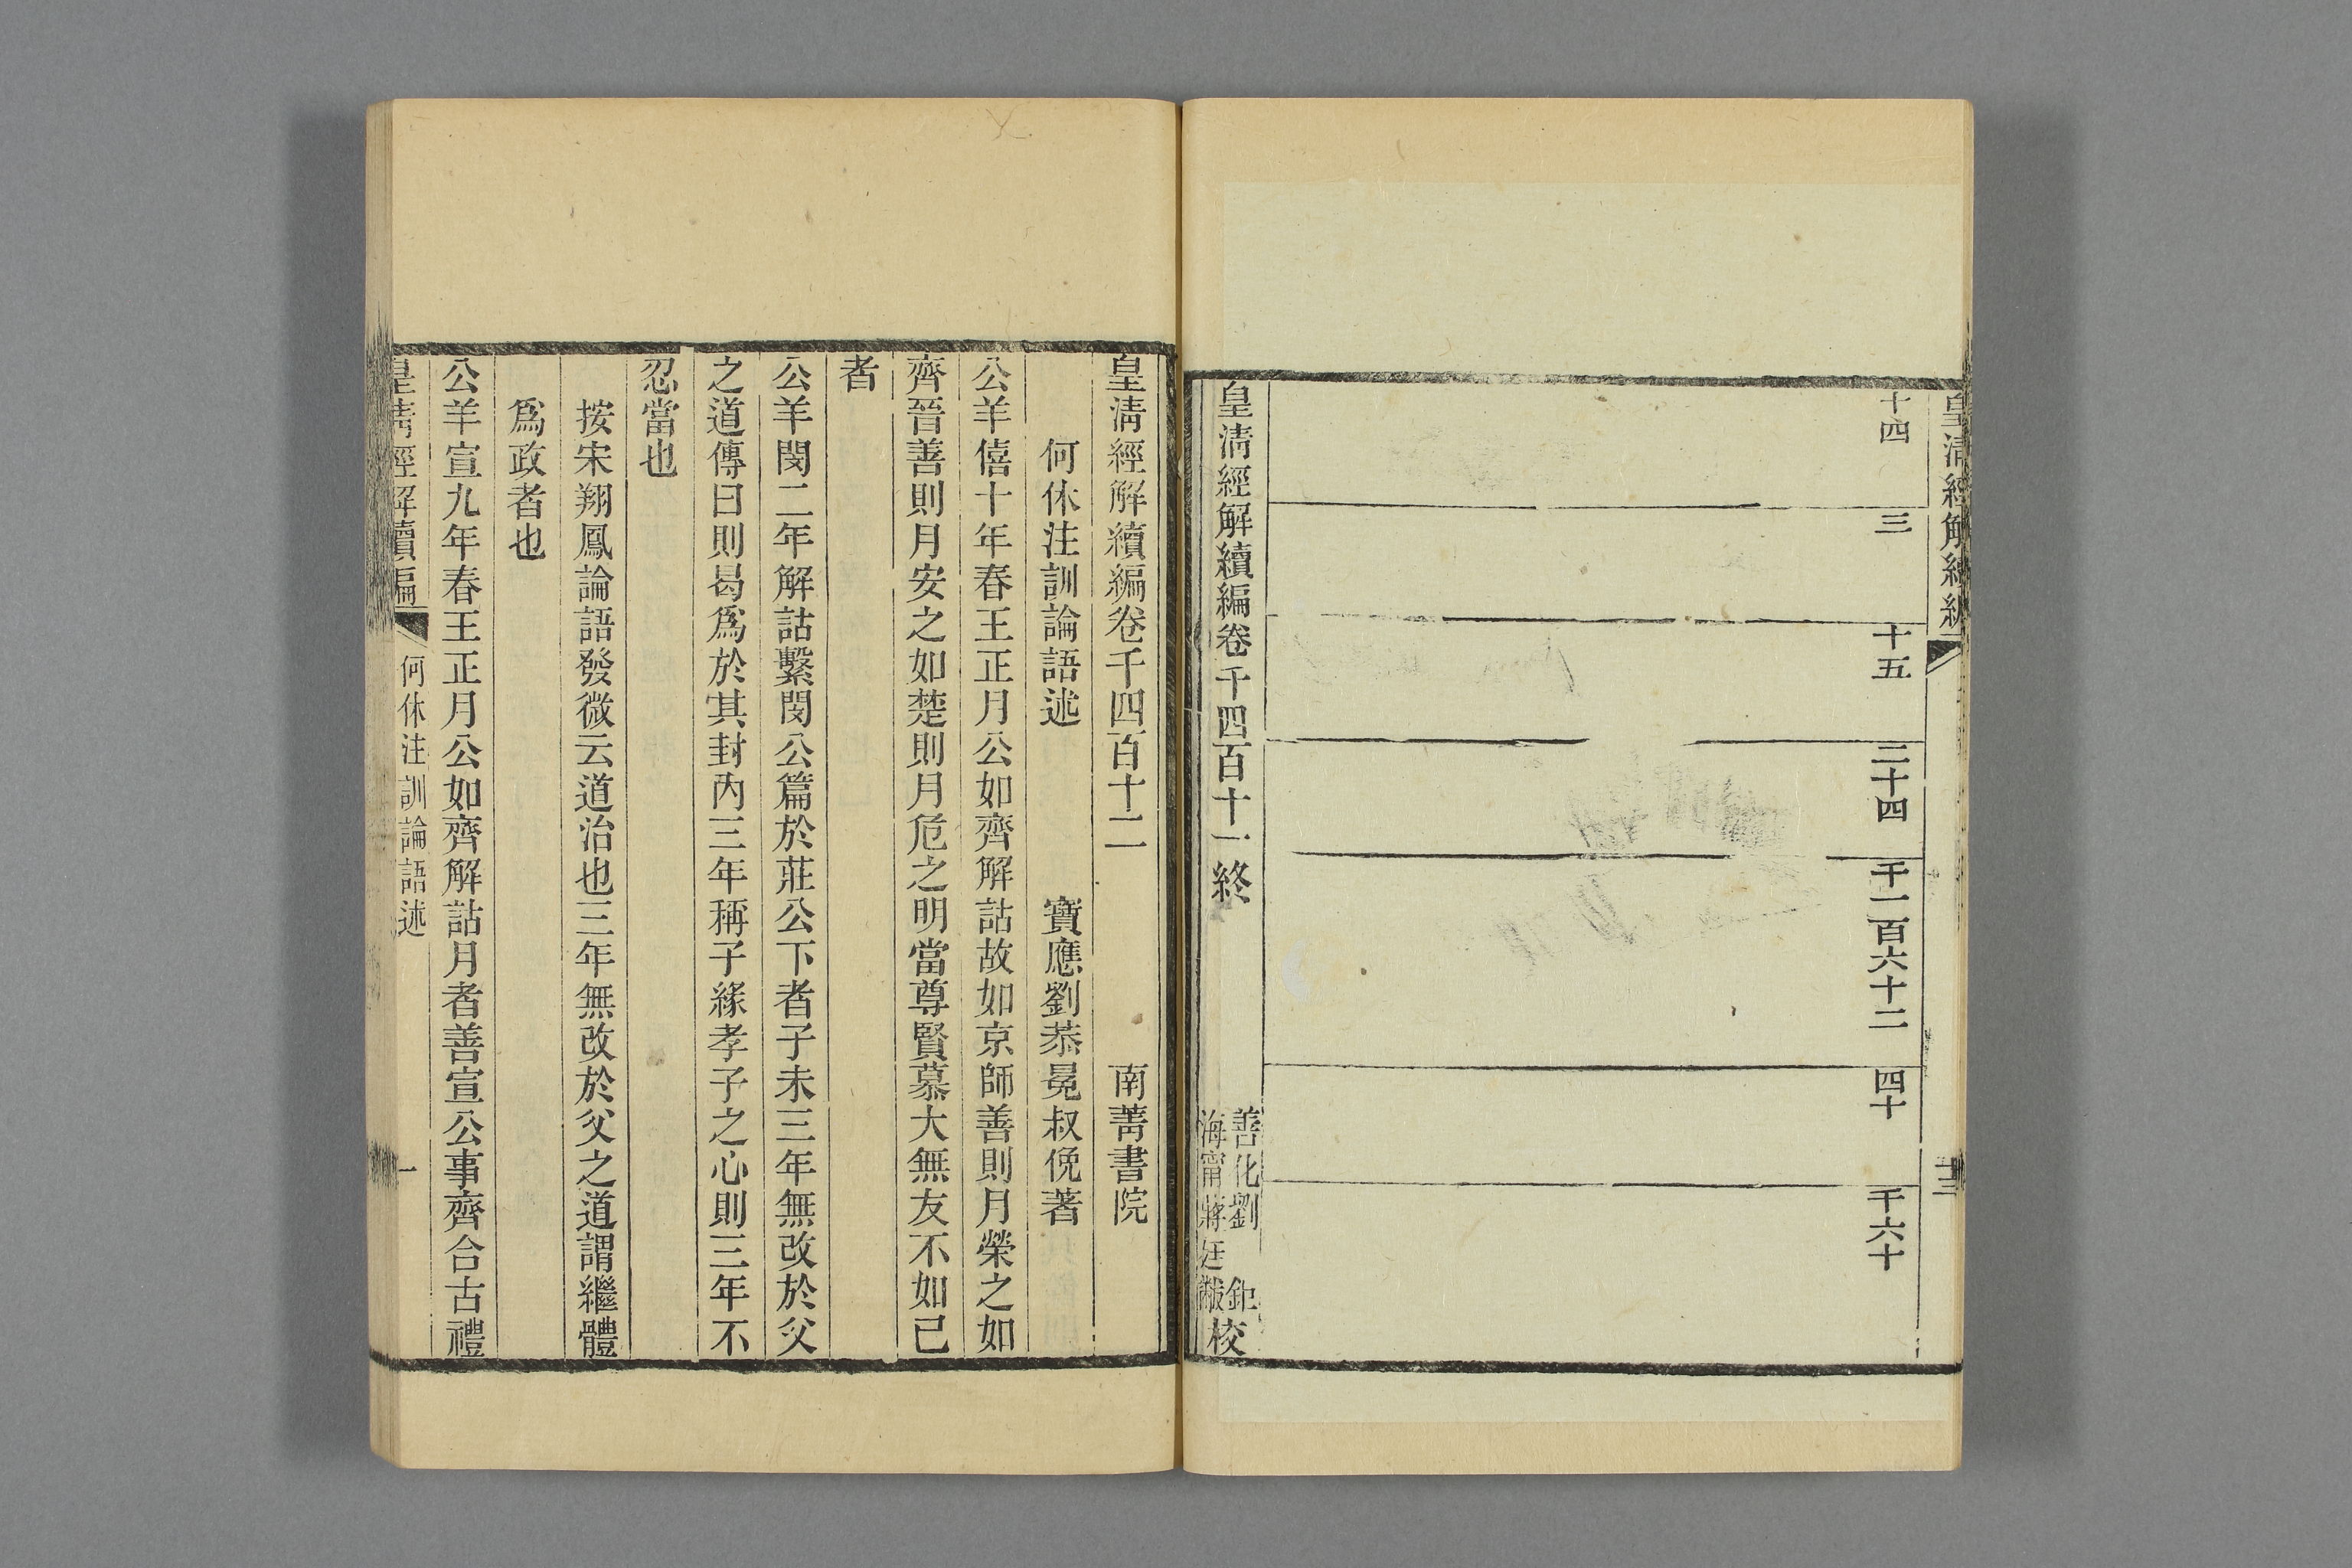 皇清經解續編
十四
三
十五
二十四
千二百六十二
四十
千六十
皇清經解續編卷千四百十一終
善化劉 鉅
海甯蔣廷黻
校
皇清經解續編卷千四百十二 南菁書院
何休注訓論語述 寶應劉恭冕叔俛著
公羊僖十年春王正月公如齊解詁故如京師善則月榮之如
齊晉善則月安之如楚則月危之明當尊賢慕大無友不如己
者
公羊閔二年解詁繫閔公篇於莊公下者子未三年無改於父
之道傳曰則曷爲於其封內三年稱子緣孝子之心則三年不
忍當也
按宋翔鳳論語發微云道治也三年無改於父之道謂繼體
爲政者也
公羊宣九年春王正月公如齊解詁月者善宣公事齊合古禮
皇清經解續編 何休注訓論語述 一